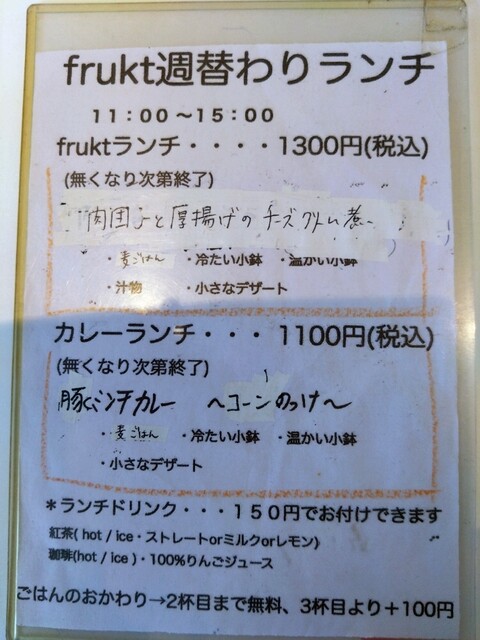 frukt週替わりランチ
11:00〜15:00
fruktランチ・・・・1300円(税込)
(無くなり次第終了)
肉団子と厚揚げのチーズクリーム煮
・麦ごはん ・冷たい小鉢 ・温かい小鉢
・汁物 ・小さなデザート
カレーランチ・・・1100円(税込)
(無くなり次第終了)
豚ミンチカレー 〜コーンのっけ〜
・麦ごはん ・冷たい小鉢 ・温かい小鉢
・小さなデザート
＊ランチドリンク・・・150円でお付けできます
紅茶( hot / ice・ストレートorミルクorレモン)
珈琲(hot / ice )・100%りんごジュース
ごはんのおかわり→2杯目まで無料、3杯目より+100円